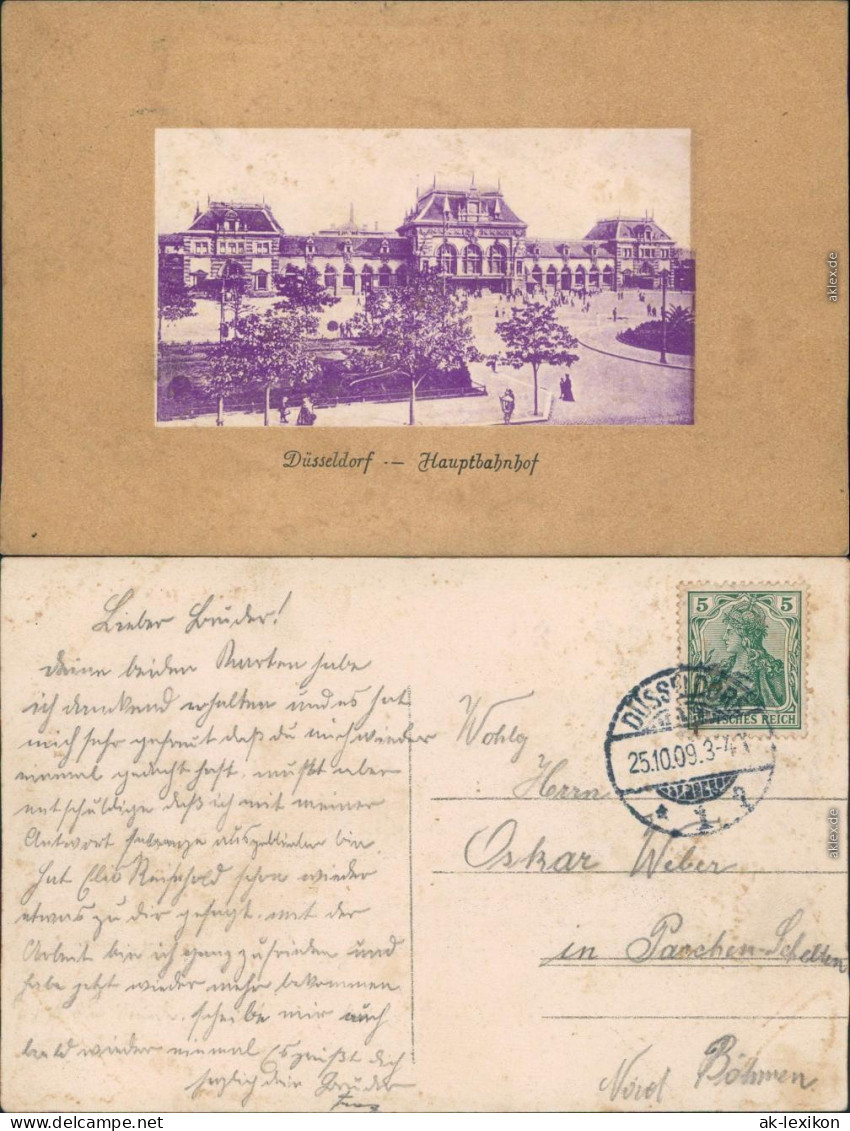 Düsseldorf .— Hauptbahnhof
Lieber Bruder!
Deine beiden Karten habe
ich dankend erhalten und es hat
mich sehr gefreut daß du mich wieder
einmal gedacht hast. mußt aber
entschuldige daß ich mit meiner
Antwort so lange ausgeblieben bin
Hat Reinhold schon wieder
etwas zu dir gesagt. mit der
Arbeit bin ich ganz zufrieden und
habe jetzt wieder mehr bekommen
scheibe mir auch
bald wieder einmal Es grüßt dich
herzlich dein Bruder
5 5
DEUTSCHES REICH
DÜSSELDORF
25.10.09. 3-4
* 1 q
Wohlg
Herrn
Oskar Weber
in
Nord Böhmen.
aklex.de
aklex.de
ak-lexikon